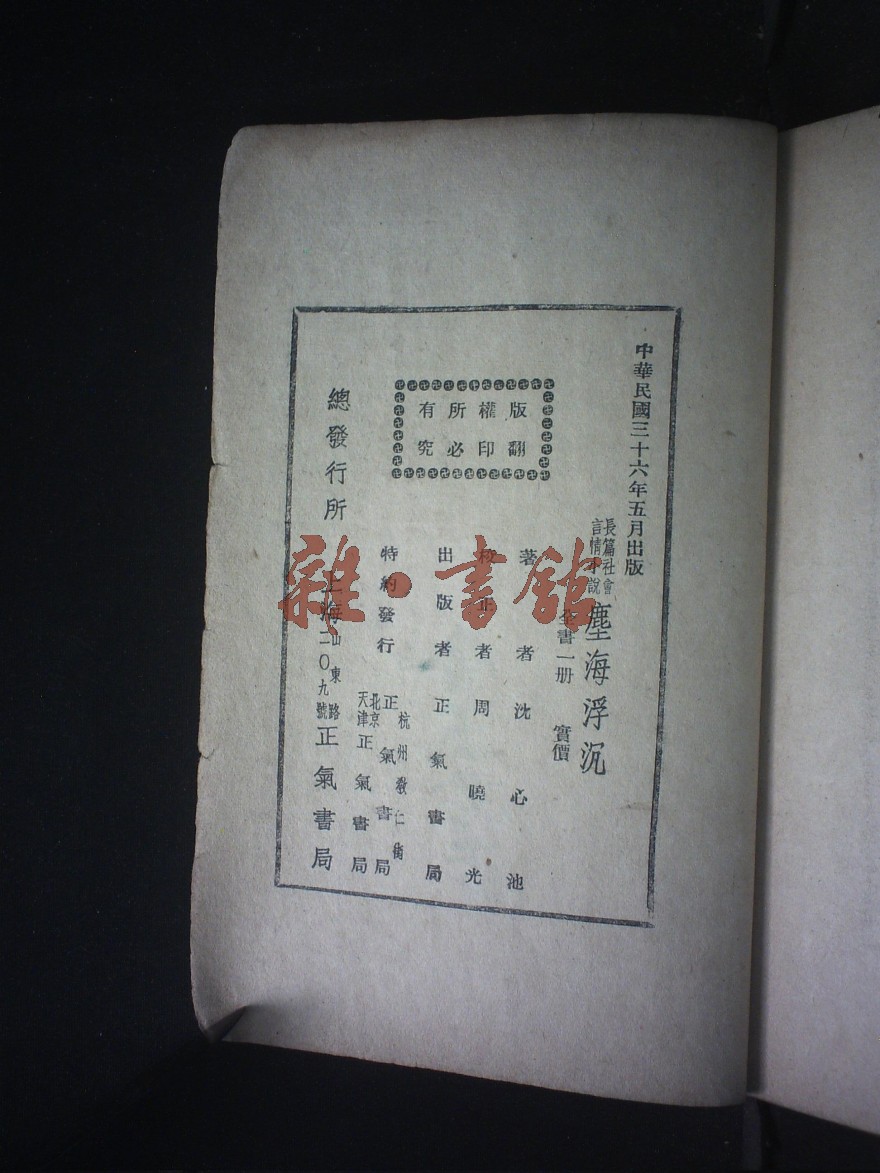 中華民國三十六年五月出版
長篇社會
言情小說
塵海浮沉
全書一册 實價
版權所有
翻印必究
著者 沈心池
校正者 周曉光
出版者 正氣書局
特約發行
杭州教仁街
正氣書局
北京
天津
正氣書局
總發行所
上海山東路二〇九號正氣書局
雜·書館